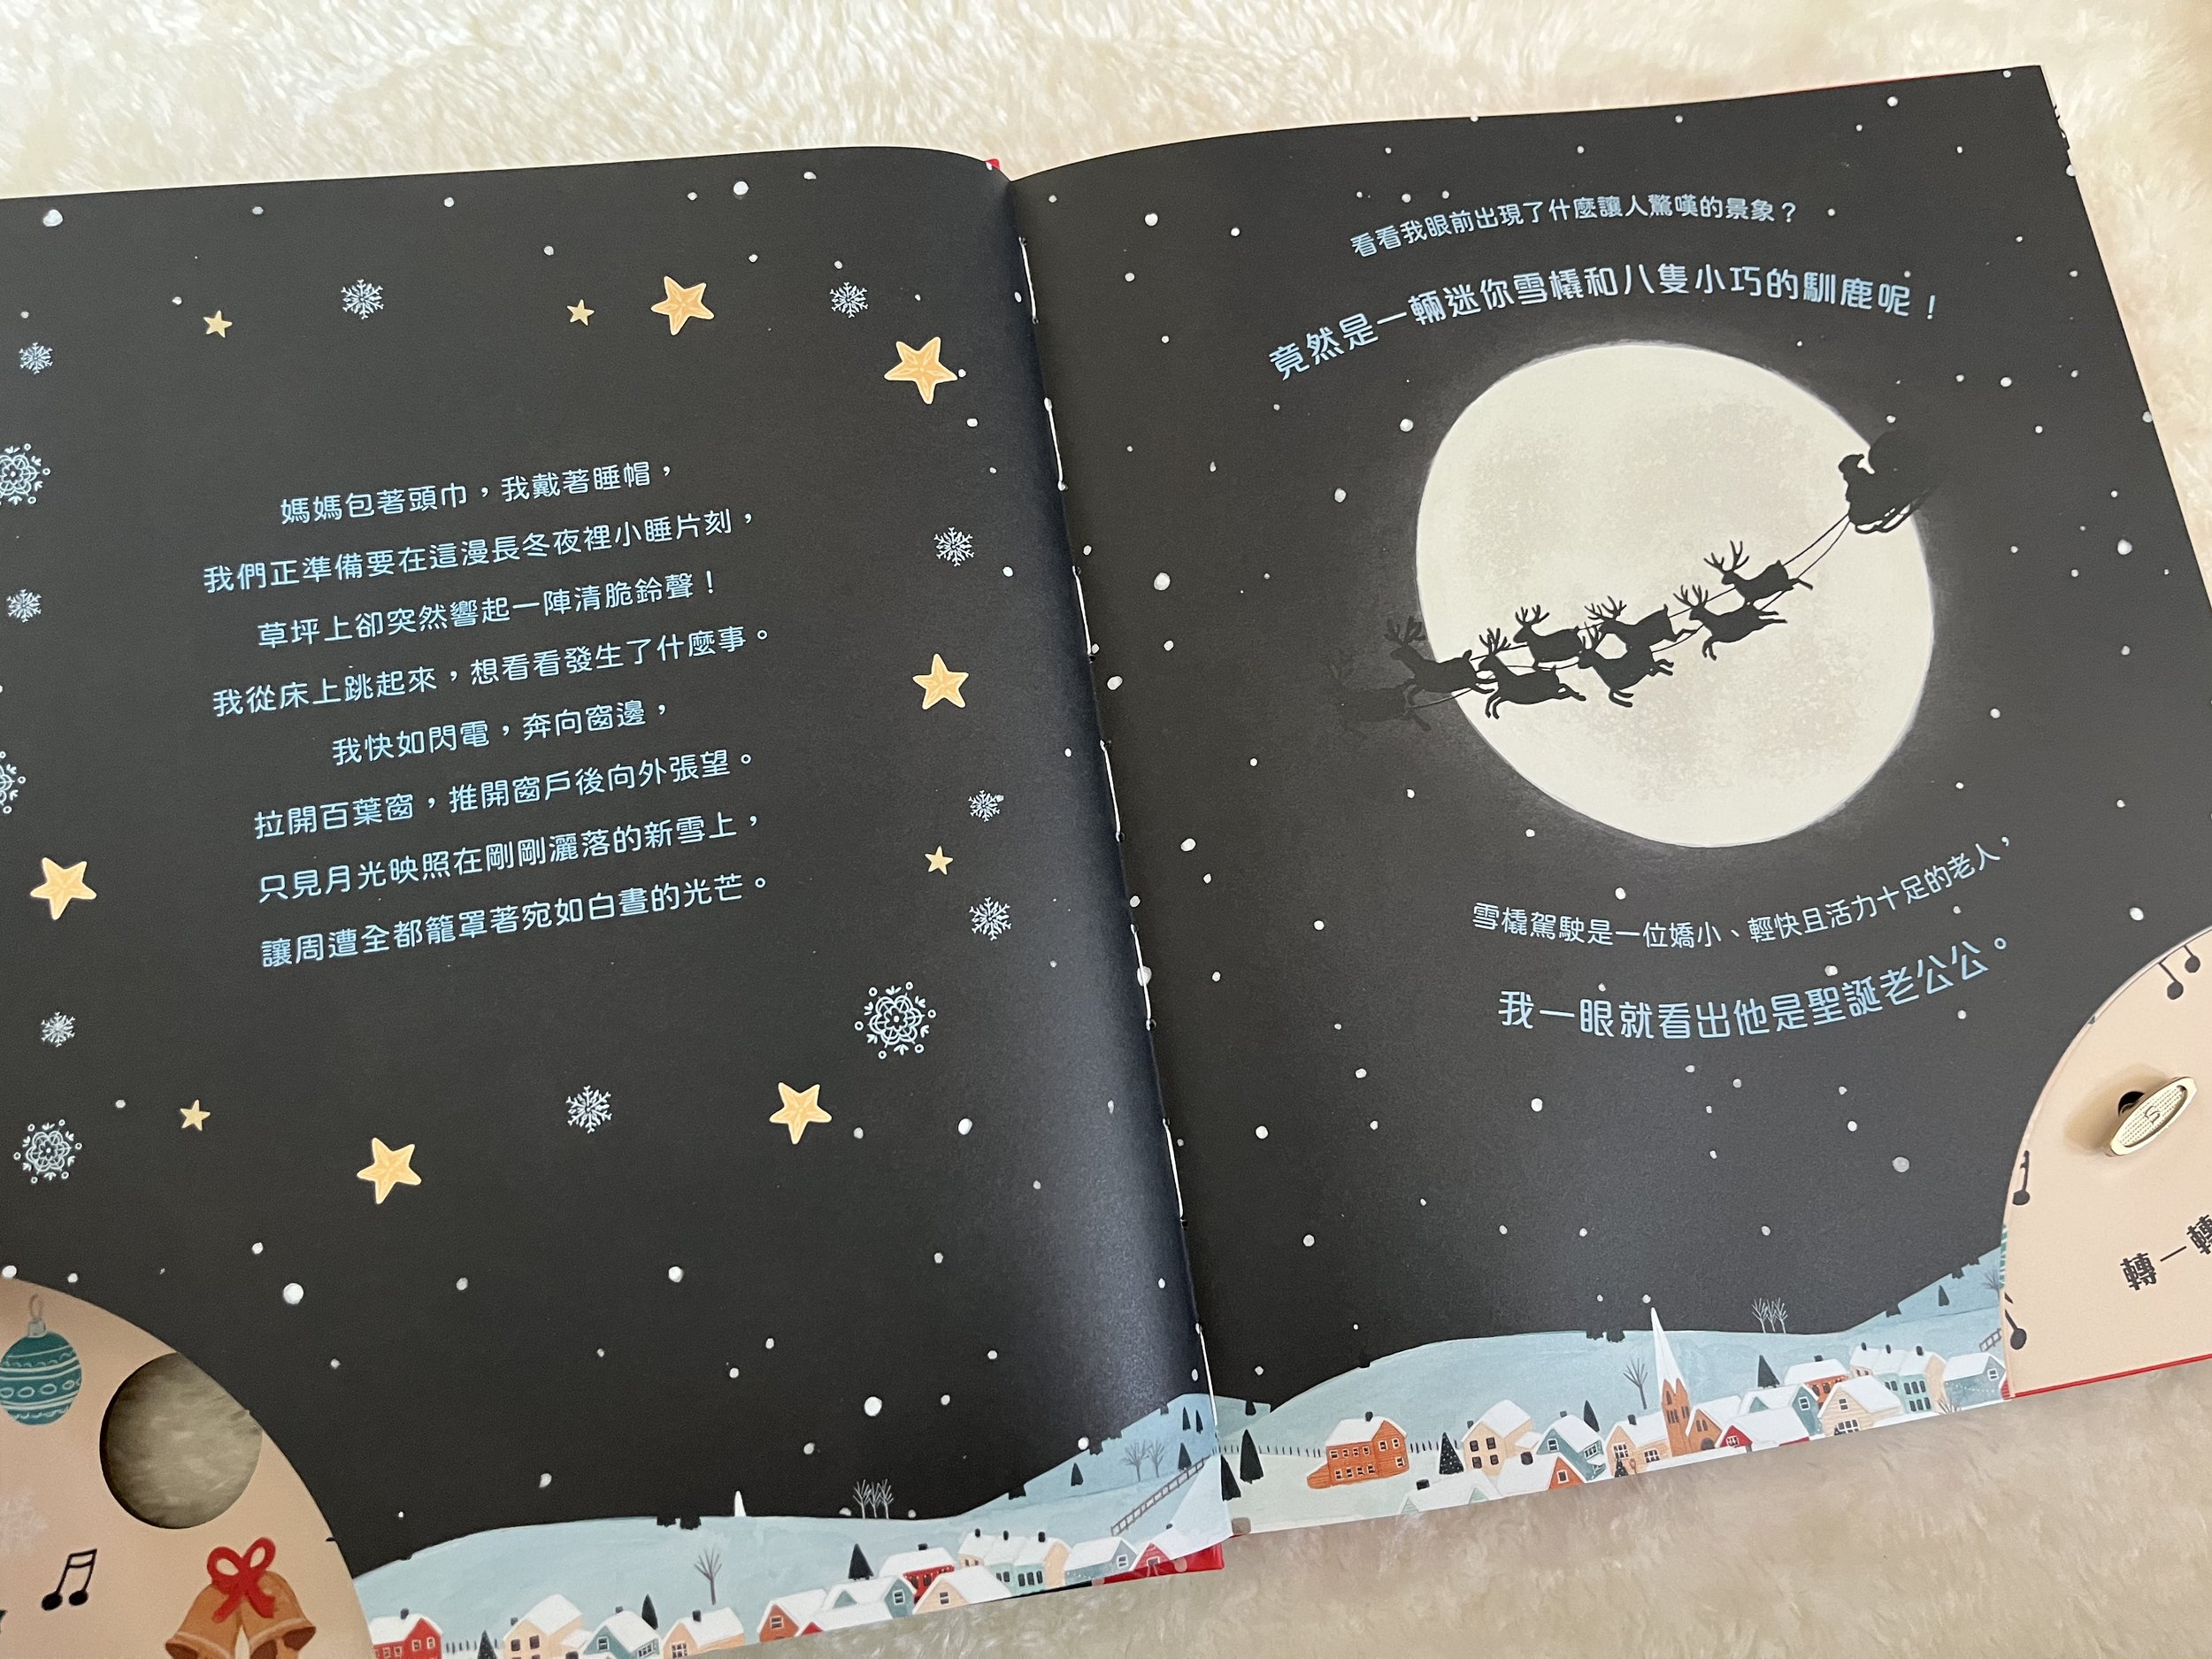 媽媽包著頭巾，我戴著睡帽，
我們正準備要在這漫長冬夜裡小睡片刻，
草坪上卻突然響起一陣清脆鈴聲！
我從床上跳起來，想看看發生了什麼事。
我快如閃電，奔向窗邊，
拉開百葉窗，推開窗戶後向外張望。
只見月光映照在剛剛灑落的新雪上，
讓周遭全都籠罩著宛如白晝的光芒。
看看我眼前出現了什麼讓人驚嘆的景象？
竟然是一輛迷你雪橇和八隻小巧的馴鹿呢！
雪橇駕駛是一位嬌小、輕快且活力十足的老人，
我一眼就看出他是聖誕老公公。
轉一轉